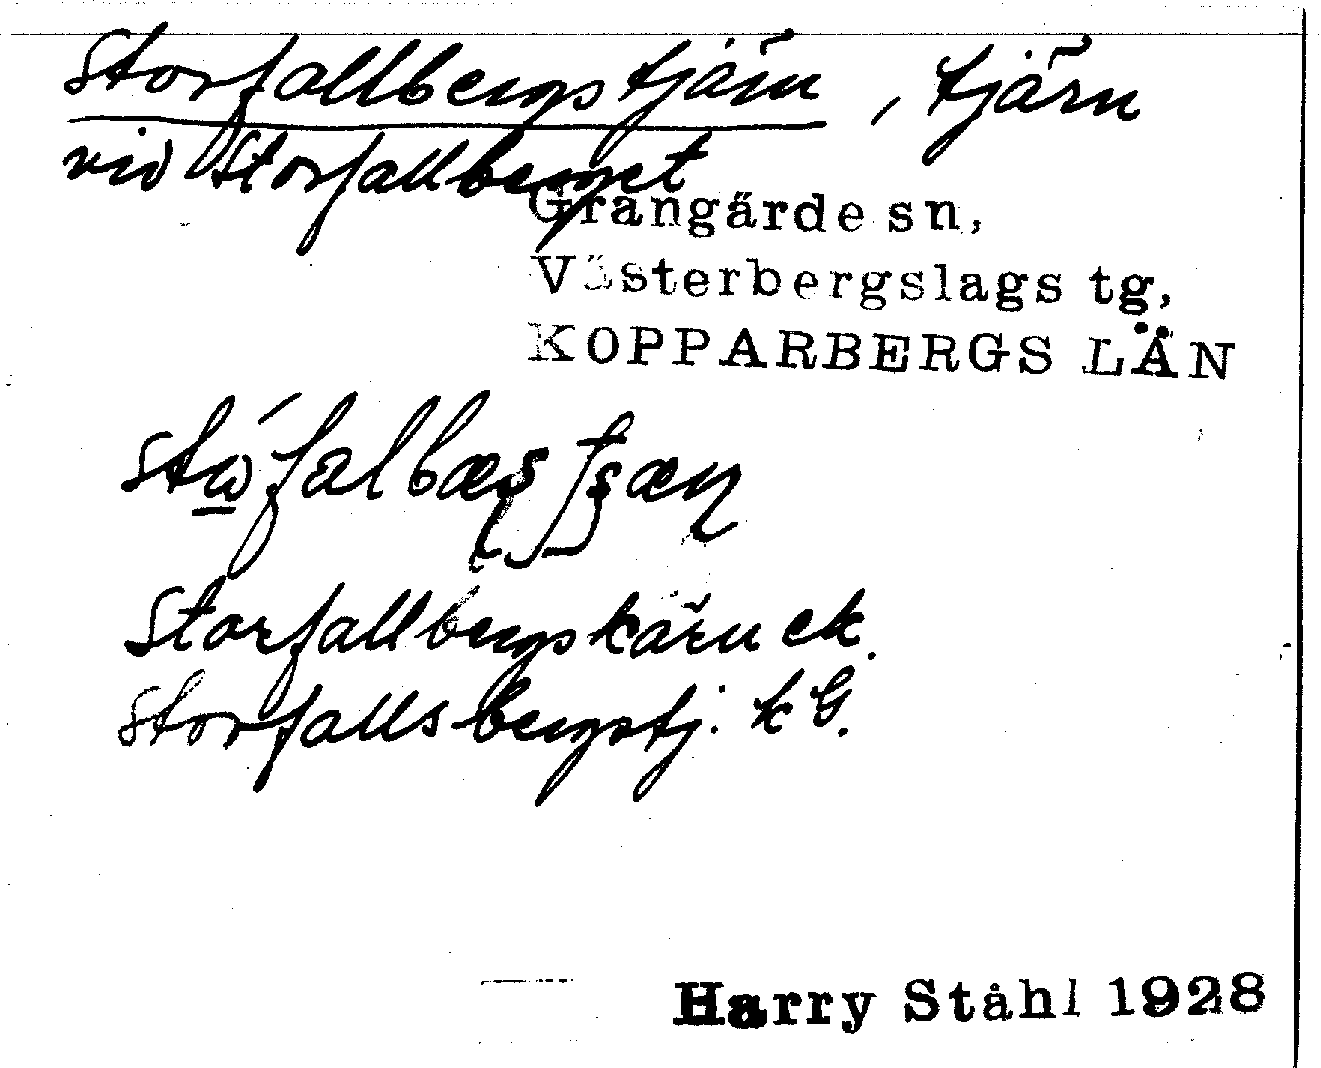 Storfallbergstjärn, tjärn
vid Storfallberget
Grangärde sn,
Västerbergslags tg,
KOPPARBERGS LÄN
Storfallbergskärn ek.
Storfallsbergstj. kG.
Harry Ståhl 1928